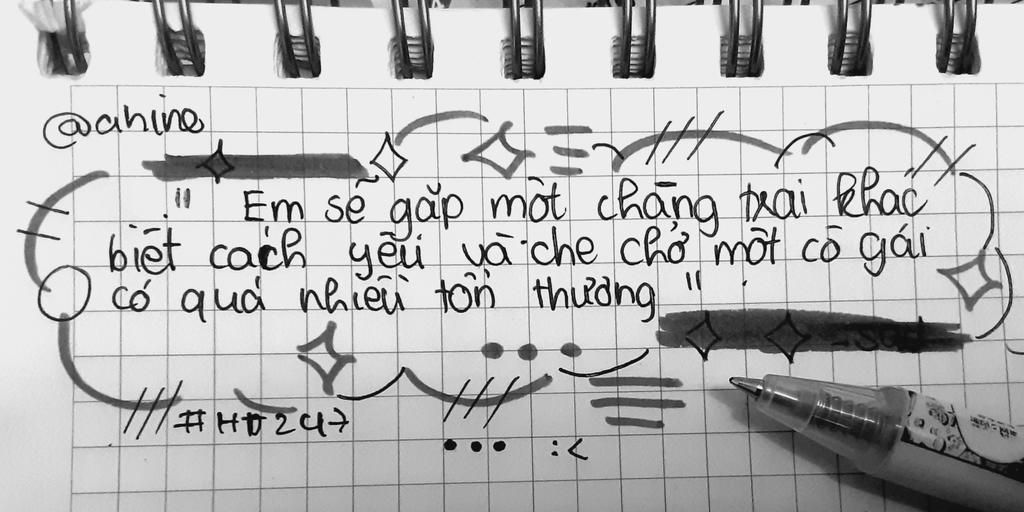 @anine
" Em sẽ gặp một chàng trai khác
biết cách yêu và che chở một cô gái
có quá nhiều tổn thương "
#HD247
:<